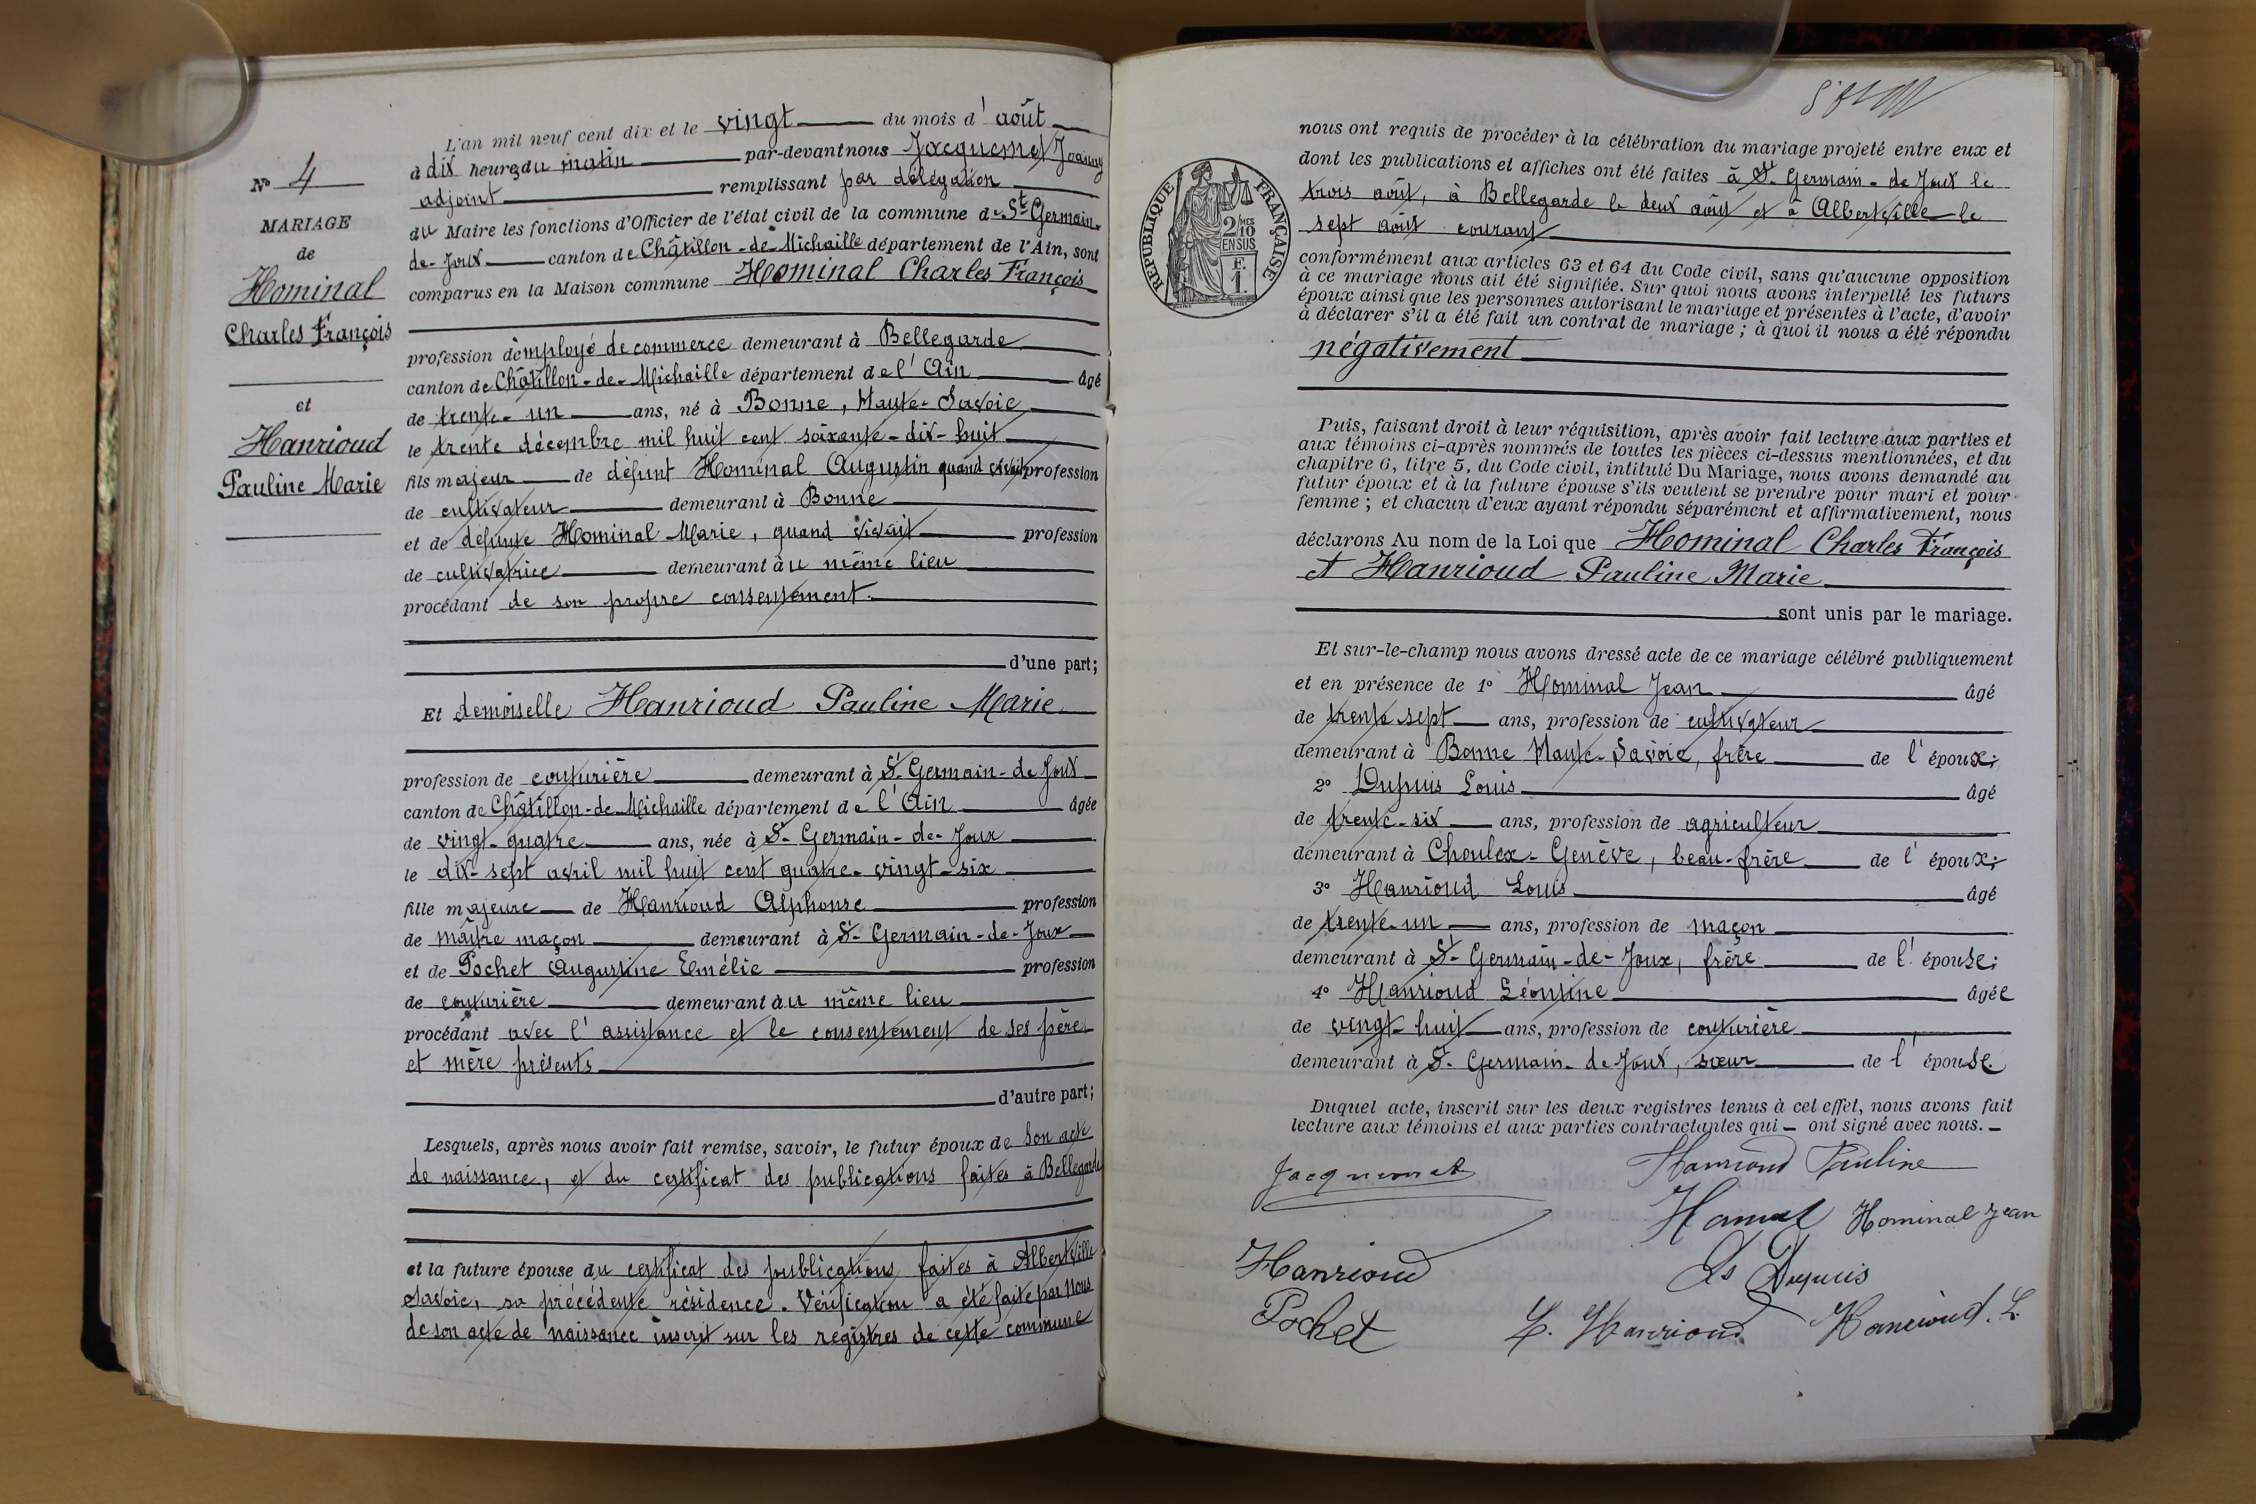 N° 4
MARIAGE
de
Hominal
Charles François
et
Hanrioud
Pauline Marie
L'an mil neuf cent dix et le vingt du mois d'août
à dix heures du matin par-devant nous Jacquemet Joanny
adjoint remplissant par délégation
du Maire les fonctions d'Officier de l'état civil de la commune de St Germain-
de-Joux canton de Châtillon-de-Michaille département de l'Ain, sont
comparus en la Maison commune Hominal Charles François
profession d'employé de commerce demeurant à Bellegarde
canton de Châtillon-de-Michaille département de l'Ain âgé
de trente-un ans, né à Bonne, Haute-Savoie
le trente décembre mil huit cent soixante-dix-huit
fils majeur de défunt Hominal Augustin quand vivait profession
de cultivateur demeurant à Bonne
et de défunte Hominal Marie, quand vivait profession
de cultivatrice demeurant àu même lieu
procédant de son propre consentement.
d'une part;
Et demoiselle Hanrioud Pauline Marie
profession de couturière demeurant à St-Germain-de-Joux
canton de Châtillon-de-Michaille département de l'Ain âgée
de vingt-quatre ans, née à St-Germain-de-Joux
le dix-sept avril mil huit cent quatre-vingt-six
fille majeure de Hanrioud Alphonse profession
de maître maçon demeurant à St-Germain-de-Joux
et de Pochet Augustine Emélie profession
de couturière demeurant àu même lieu
procédant avec l'assistance et le consentement de ses père
et mère présents
d'autre part;
Lesquels, après nous avoir fait remise, savoir, le futur époux de son acte
de naissance, et du certificat des publications faites à Bellegarde
et la future épouse du certificat des publications faites à Albertville
Savoie, sa précédente résidence. Vérification a été faite par nous
de son acte de naissance inscrit sur les registres de cette commune
nous ont requis de procéder à la célébration du mariage projeté entre eux et
dont les publications et affiches ont été faites à St-Germain-de-Joux le
trois août, à Bellegarde le deux août et à Albertville le
sept août courant
REPUBLIQUE FRANÇAISE
2 MES
10
EN SUS
F.
1.
conformément aux articles 63 et 64 du Code civil, sans qu'aucune opposition
à ce mariage nous ait été signifiée. Sur quoi nous avons interpellé les futurs
époux ainsi que les personnes autorisant le mariage et présentes à l'acte, d'avoir
à déclarer s'il a été fait un contrat de mariage ; à quoi il nous a été répondu
négativement
Puis, faisant droit à leur réquisition, après avoir fait lecture aux parties et
aux témoins ci-après nommés de toutes les pièces ci-dessus mentionnées, et du
chapitre 6, titre 5, du Code civil, intitulé Du Mariage, nous avons demandé au
futur époux et à la future épouse s'ils veulent se prendre pour mari et pour
femme ; et chacun d'eux ayant répondu séparément et affirmativement, nous
déclarons Au nom de la Loi que Hominal Charles François
et Hanrioud Pauline Marie
sont unis par le mariage.
Et sur-le-champ nous avons dressé acte de ce mariage célébré publiquement
et en présence de 1° Hominal Jean âgé
de trente sept ans, profession de cultivateur
demeurant à Bonne Haute-Savoie, frère de l'époux;
2° Dupuis Louis âgé
de trente-six ans, profession de agriculteur
demeurant à Choulex-Genève, beau-frère de l'époux;
3° Hanrioud Louis âgé
de trente-un ans, profession de maçon
demeurant à St-Germain-de-Joux, frère de l'épouse;
4° Hanrioud Léontine âgée
de vingt-huit ans, profession de couturière
demeurant à St-Germain-de-Joux, sœur de l'épouse.
Duquel acte, inscrit sur les deux registres tenus à cet effet, nous avons fait
lecture aux témoins et aux parties contractantes qui ont signé avec nous.
Jacquemet Hanrioud Pauline
Hominal Jean
Hanrioud Ls Dupuis
Pochet L. Hanrioud Hanrioud. L.